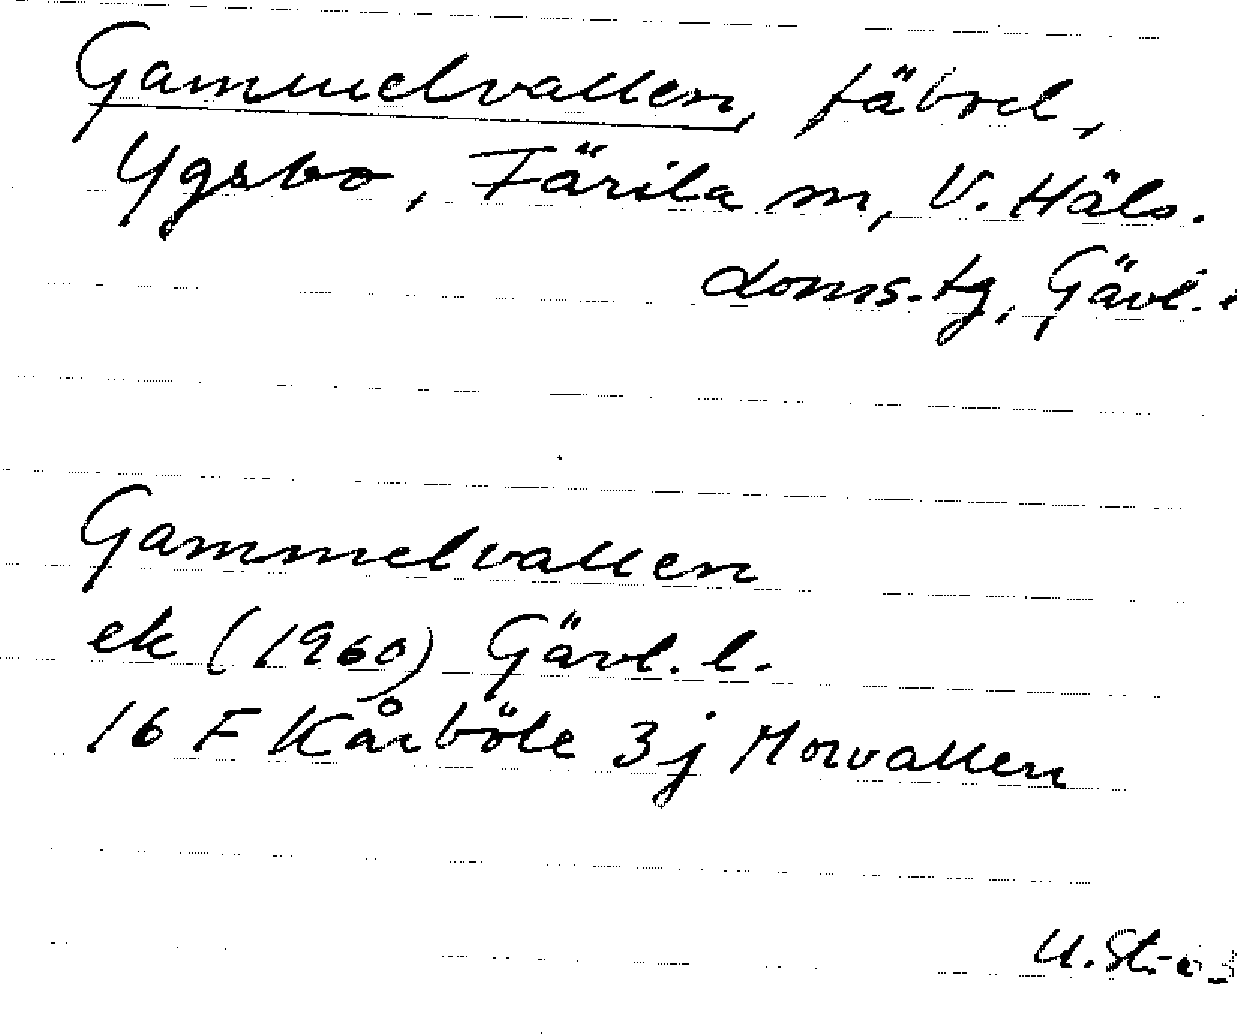 Gammelvallen, fäbod,
Ygsbo, Färila sn, V. Häls.
doms.tg, Gävl.
Gammelvallen
ek (1960) Gävl. l.
16 F Kårböle 3j Morvallen